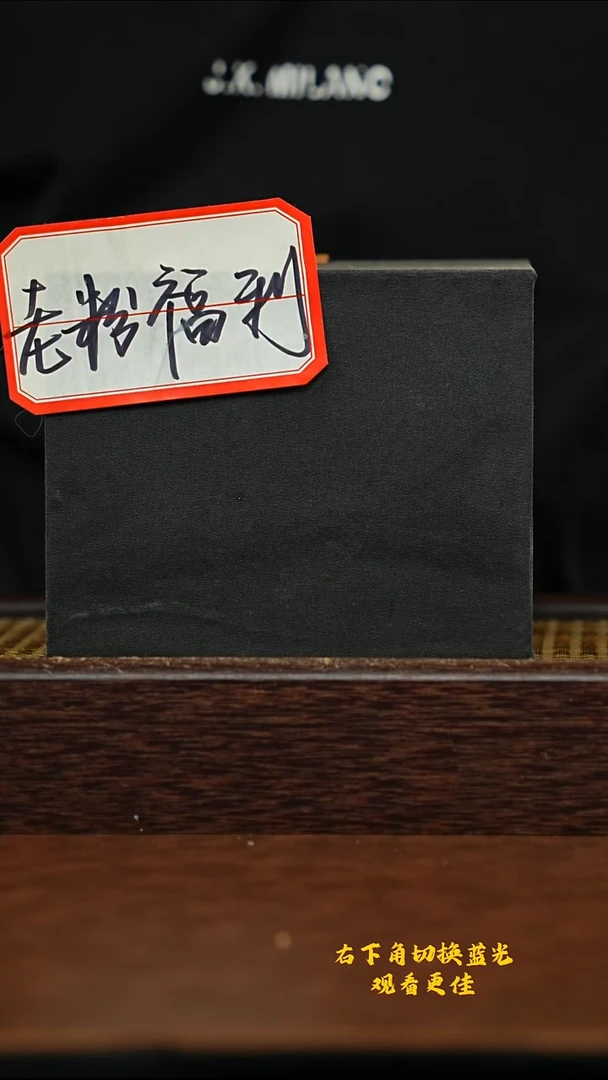 J.K.MILANO
老粉福利
右下角切换蓝光
观看更佳